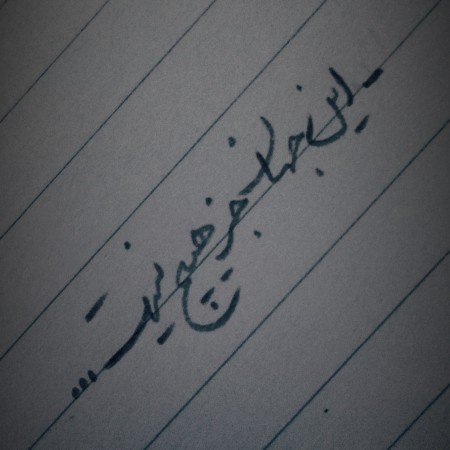 - این جهان جز هیچ نیست...